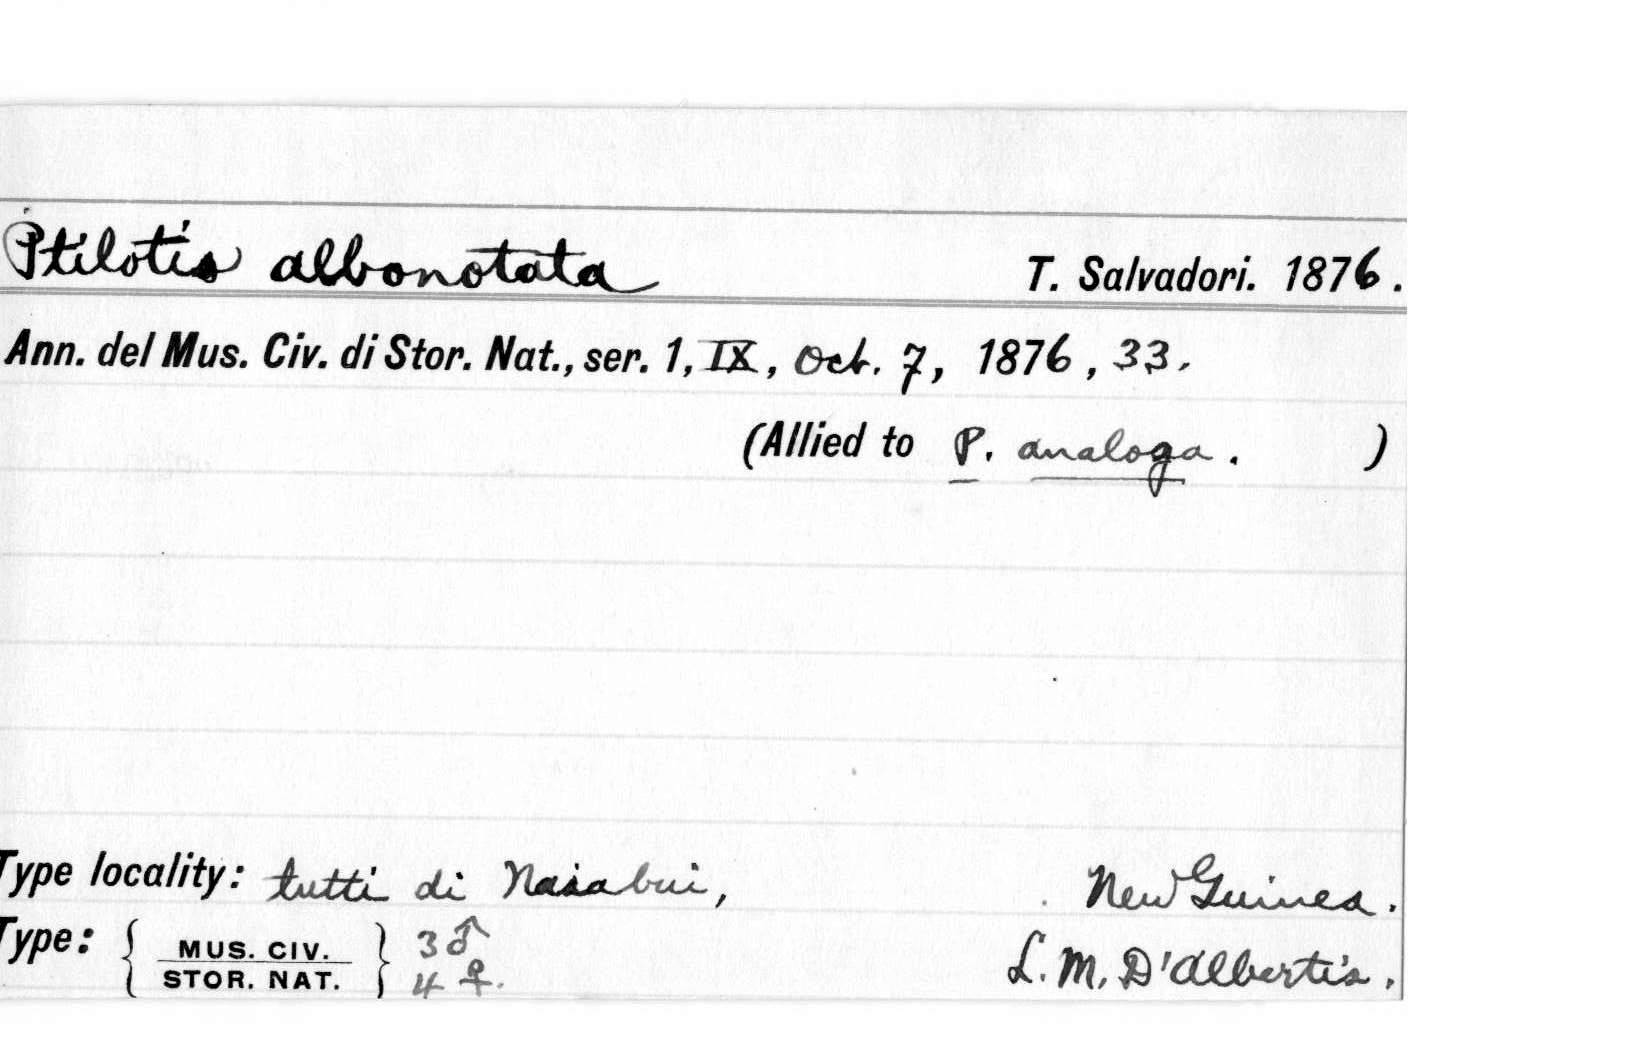 Ptilotis albonotata T. Salvadori. 1876.
Ann. del Mus. Civ. di Stor. Nat., ser. 1, IX, Oct. 7, 1876, 33.
(Allied to P. analoga. )
Type locality: tutti di Naiabui, New Guinea.
Type: { MUS. CIV. } 3♂
STOR. NAT. 4 ♀.
L. M. D'Albertis.